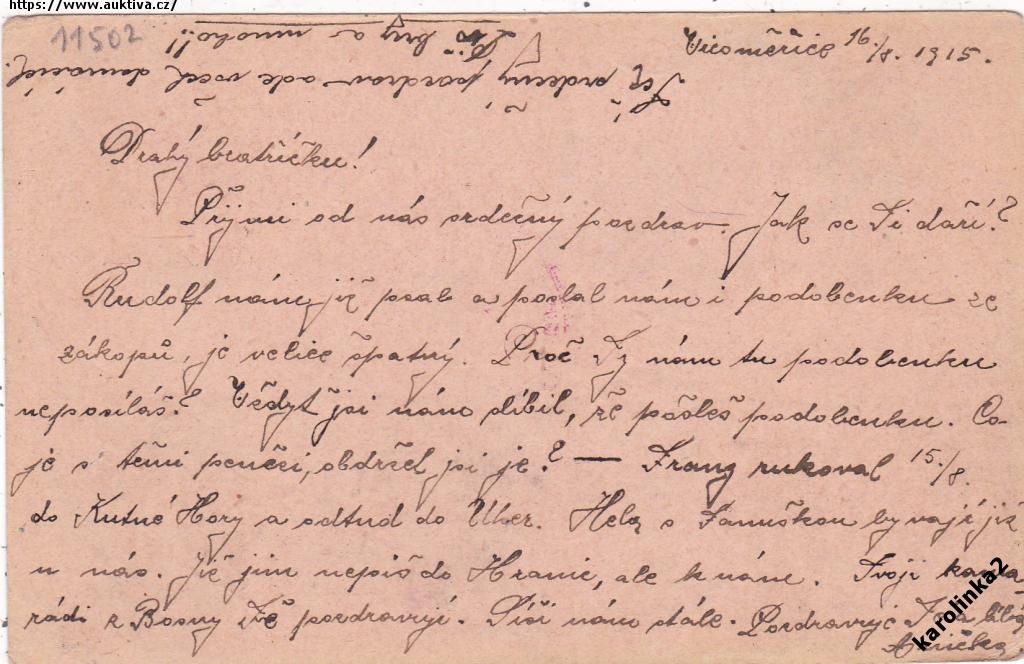 https://www.auktiva.cz/
11502
Vícoměřice 16./8. 1915.
Též srdečný pozdrav ode všech domácích.
Piš brzy a mnoho!!
Drahý bratříčku!
Přijmi od nás srdečný pozdrav. Jak se Ti daří?
Rudolf nám již psal a poslal nám i podobenku ze
zákopů, je velice špatný. Proč Ty nám tu podobenku
neposíláš? Vždyť jsi nám slíbil, že pošleš podobenku. Co
je s těmi penězi, obdržel jsi je? — Franz rukoval 15./8.
do Kutné Hory a odtud do Uher. Hela s Fanuškou bývají již
u nás. Již jim nepiš do Hranic, ale k nám. Tvoji kama-
rádi z Bosny Tě pozdravují. Píší nám stále. Pozdravuje
Anežka.
karolinka2